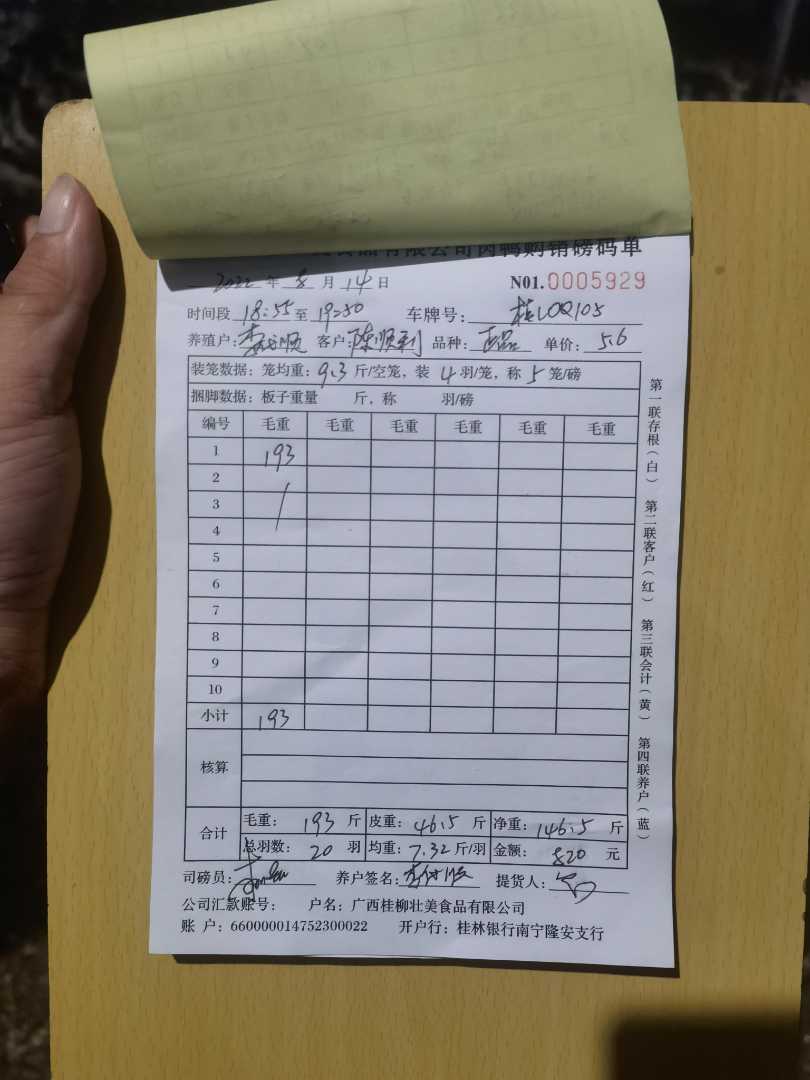 食品有限公司肉鸭购销磅码单
2022年8月14日 N01.0005929
时间段 18:55 至 19:50 车牌号: 桂LQQ105
养殖户: 顺 客户: 陈顺利 品种: 单价: 5.6
装笼数据: 笼均重: 9.3 斤/空笼, 装 4 羽/笼, 称 5 笼/磅
捆脚数据: 板子重量 斤, 称 羽/磅
编号 毛重 毛重 毛重 毛重 毛重 毛重
1 193
2
3
4
5
6
7
8
9
10
小计 193
核算
合计 毛重: 193 斤 皮重: 46.5 斤 净重: 146.5 斤
总羽数: 20 羽 均重: 7.32 斤/羽 金额: 820 元
司磅员: 养户签名: 提货人:
公司汇款账号: 户名: 广西桂柳壮美食品有限公司
账 户: 660000014752300022 开户行: 桂林银行南宁隆安支行
第一联存根(白) 第二联客户(红) 第三联会计(黄) 第四联养户(蓝)